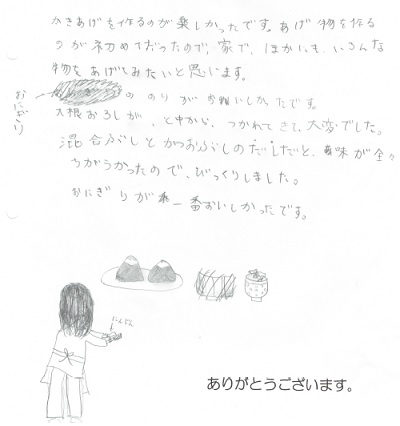 かきあげを作るのが楽しかったです。あげ物を作る
のが初めてだったので、家で、ほかにも、いろんな
物をあげてみたいと思います。
おにぎり
の のりが お願いしかったです。
大根おろしが、と中から、つかれてきて、大変でした。
混合ぶしとかつおぶしのだしだと、味が全々
ちがうかったので、びっくりしました。
おにぎりが一番おいしかったです。
にんじん
ありがとうございます。